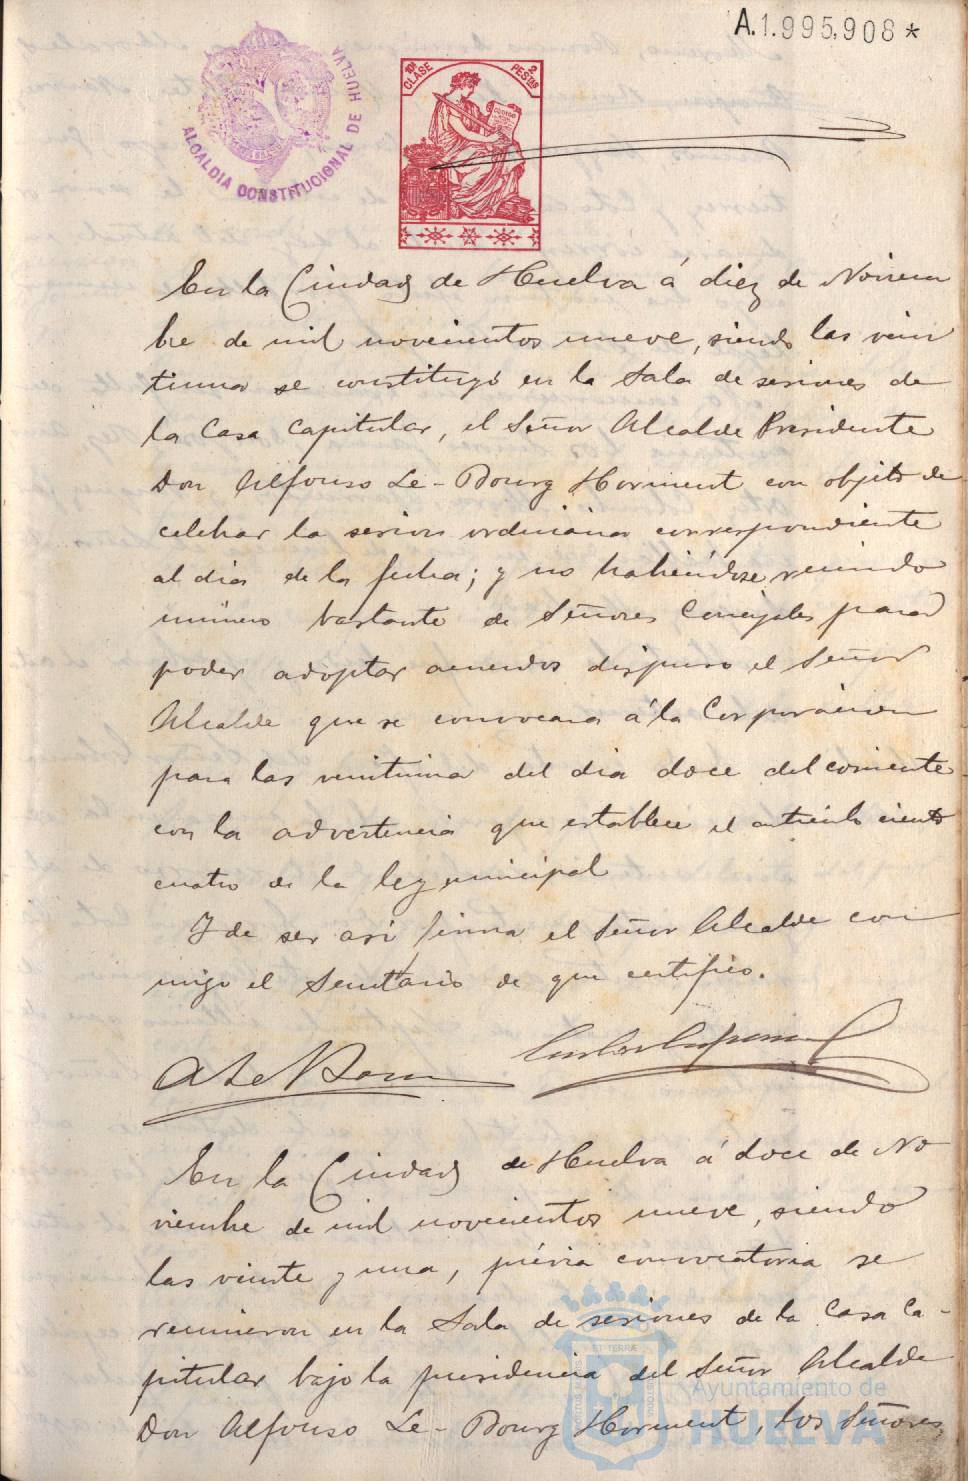 A.1.995,908*
ALCALDIA CONSTITUCIONAL DE HUELVA
10ª CLASE
2 PESTAS
En la Ciudad de Huelva á diez de Noviem
bre de mil novecientos nueve, siendo las vein
tiuna se constituyó en la Sala de sesiones de
la Casa Capitular, el Señor Alcalde Presidente
Don Alfonso Le-Bourg Horment con objeto de
celebrar la sesion ordinaria correspondiente
al dia de la fecha; y no habiéndose reunido
número bastante de Señores Concejales para
poder adoptar acuerdos dispuso el Señor
Alcalde que se convocara á la Corporacion
para las veintiuna del dia doce del corriente
con la advertencia que establece el artículo ciento
cuatro de la ley municipal
Y de ser asi firma el Señor Alcalde con
migo el Secretario de que certifico.
A Le Bour
En la Ciudad de Huelva á doce de No
viembre de mil novecientos nueve, siendo
las veinte y una, prévia convocatoria se
reunieron en la Sala de sesiones de la Casa Ca-
pitular bajo la presidencia del Señor Alcalde
Don Alfonso Le-Bourg Horment, los Señores
Ayuntamiento de
HUELVA